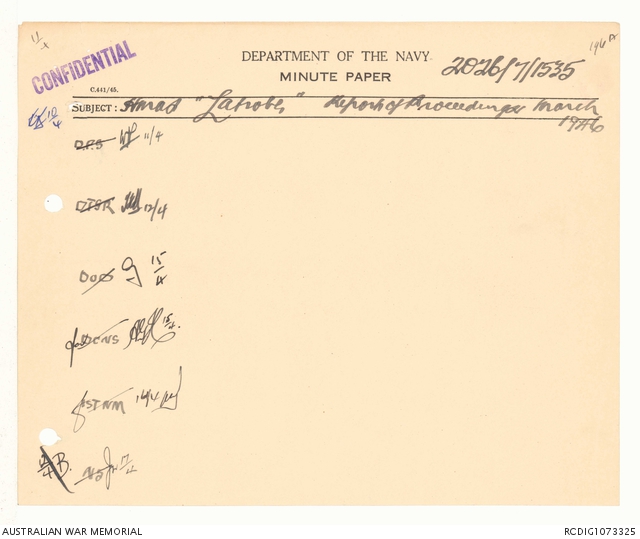 11/4
CONFIDENTIAL
DEPARTMENT OF THE NAVY
MINUTE PAPER
2026/7/1535
196A
C.441/45.
SUBJECT: HMAS "Latrobe" Report of Proceedings March
1946
10/4
DPS 11/4
12/4
DOD 15/4
DCNS 15/4
16/4
B. 17/4
AUSTRALIAN WAR MEMORIAL
RCDIG1073325